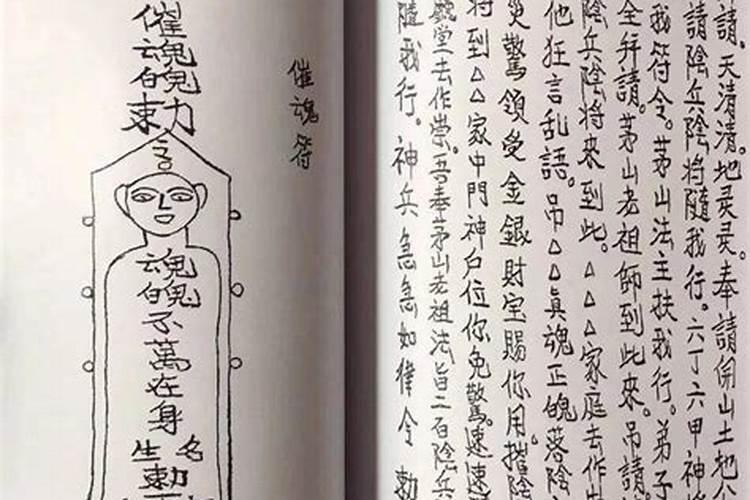 請。天清清。地灵灵。奉請開山土地公
請陰兵陰將隨我行。六丁六甲神將
我符令。茅山法主扶我行。弟子
全拜請。茅山老祖師到此來。吊請
陰兵陰将來到此。△△△家庭去作
他狂言乱語。吊△△真魂正魄落陰
災驚領受金銀財宝賜你用。摧陰
将到△△家中門神户位你免驚。速速
堂去作祟。吾奉茅山老祖法旨二百陰兵
隨我行。神兵急急如律令 勅
催魂符
催魂魄勅
魂魄不萬在身
名
生
勅